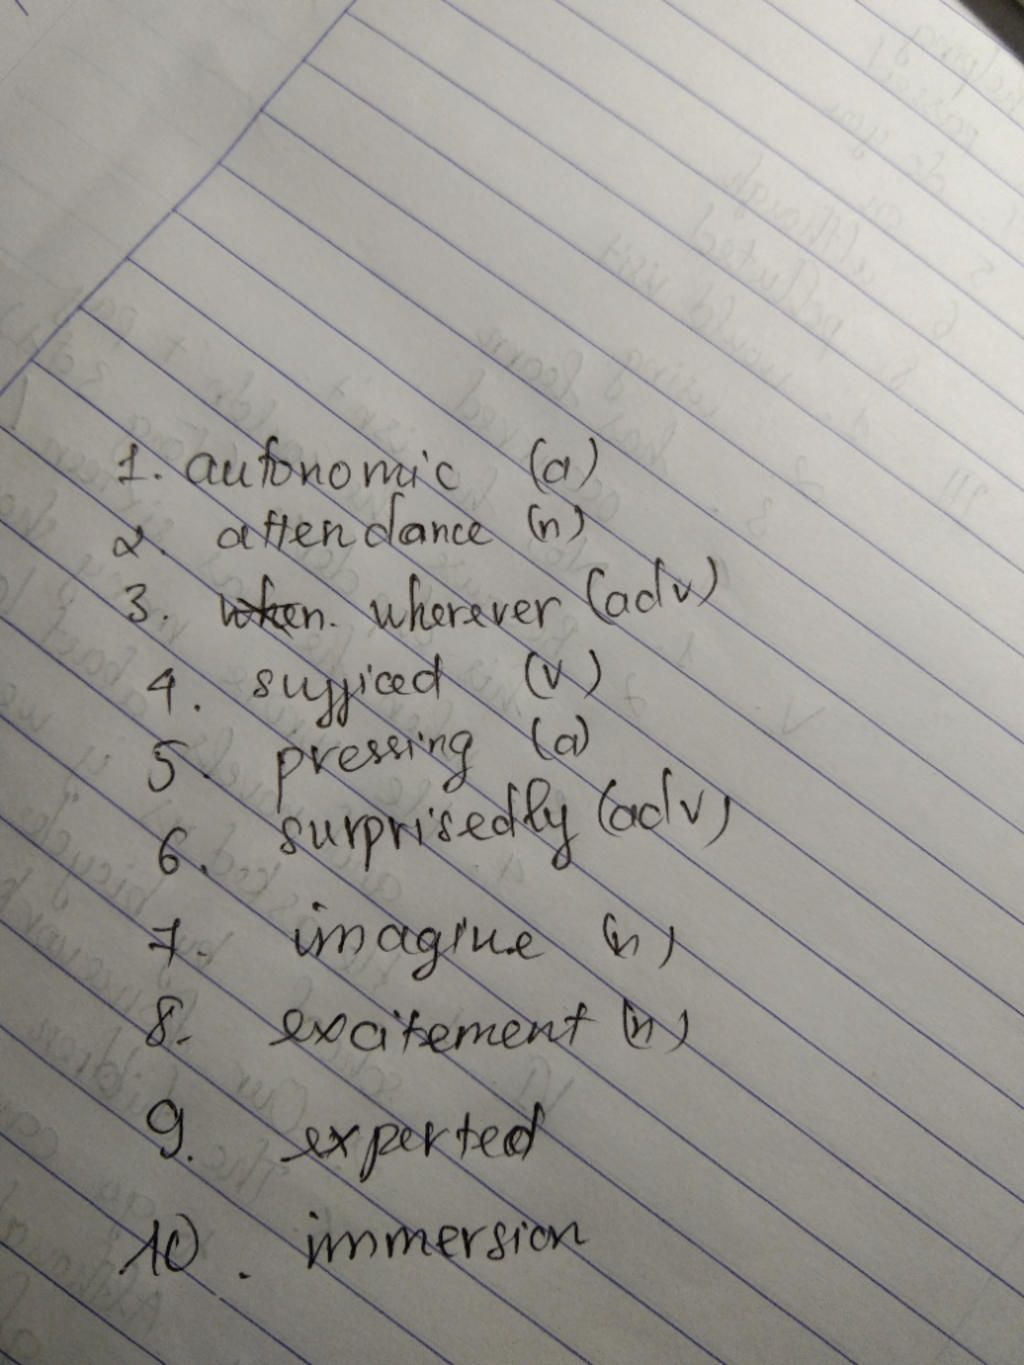 1. autonomic (a)
2. attendance (n)
3. when. wherever (adv)
4. sufficed (v)
5. pressing (a)
6. surprisedly (adv)
7. imagine (n)
8. excitement (n)
9. experted
10. immersion